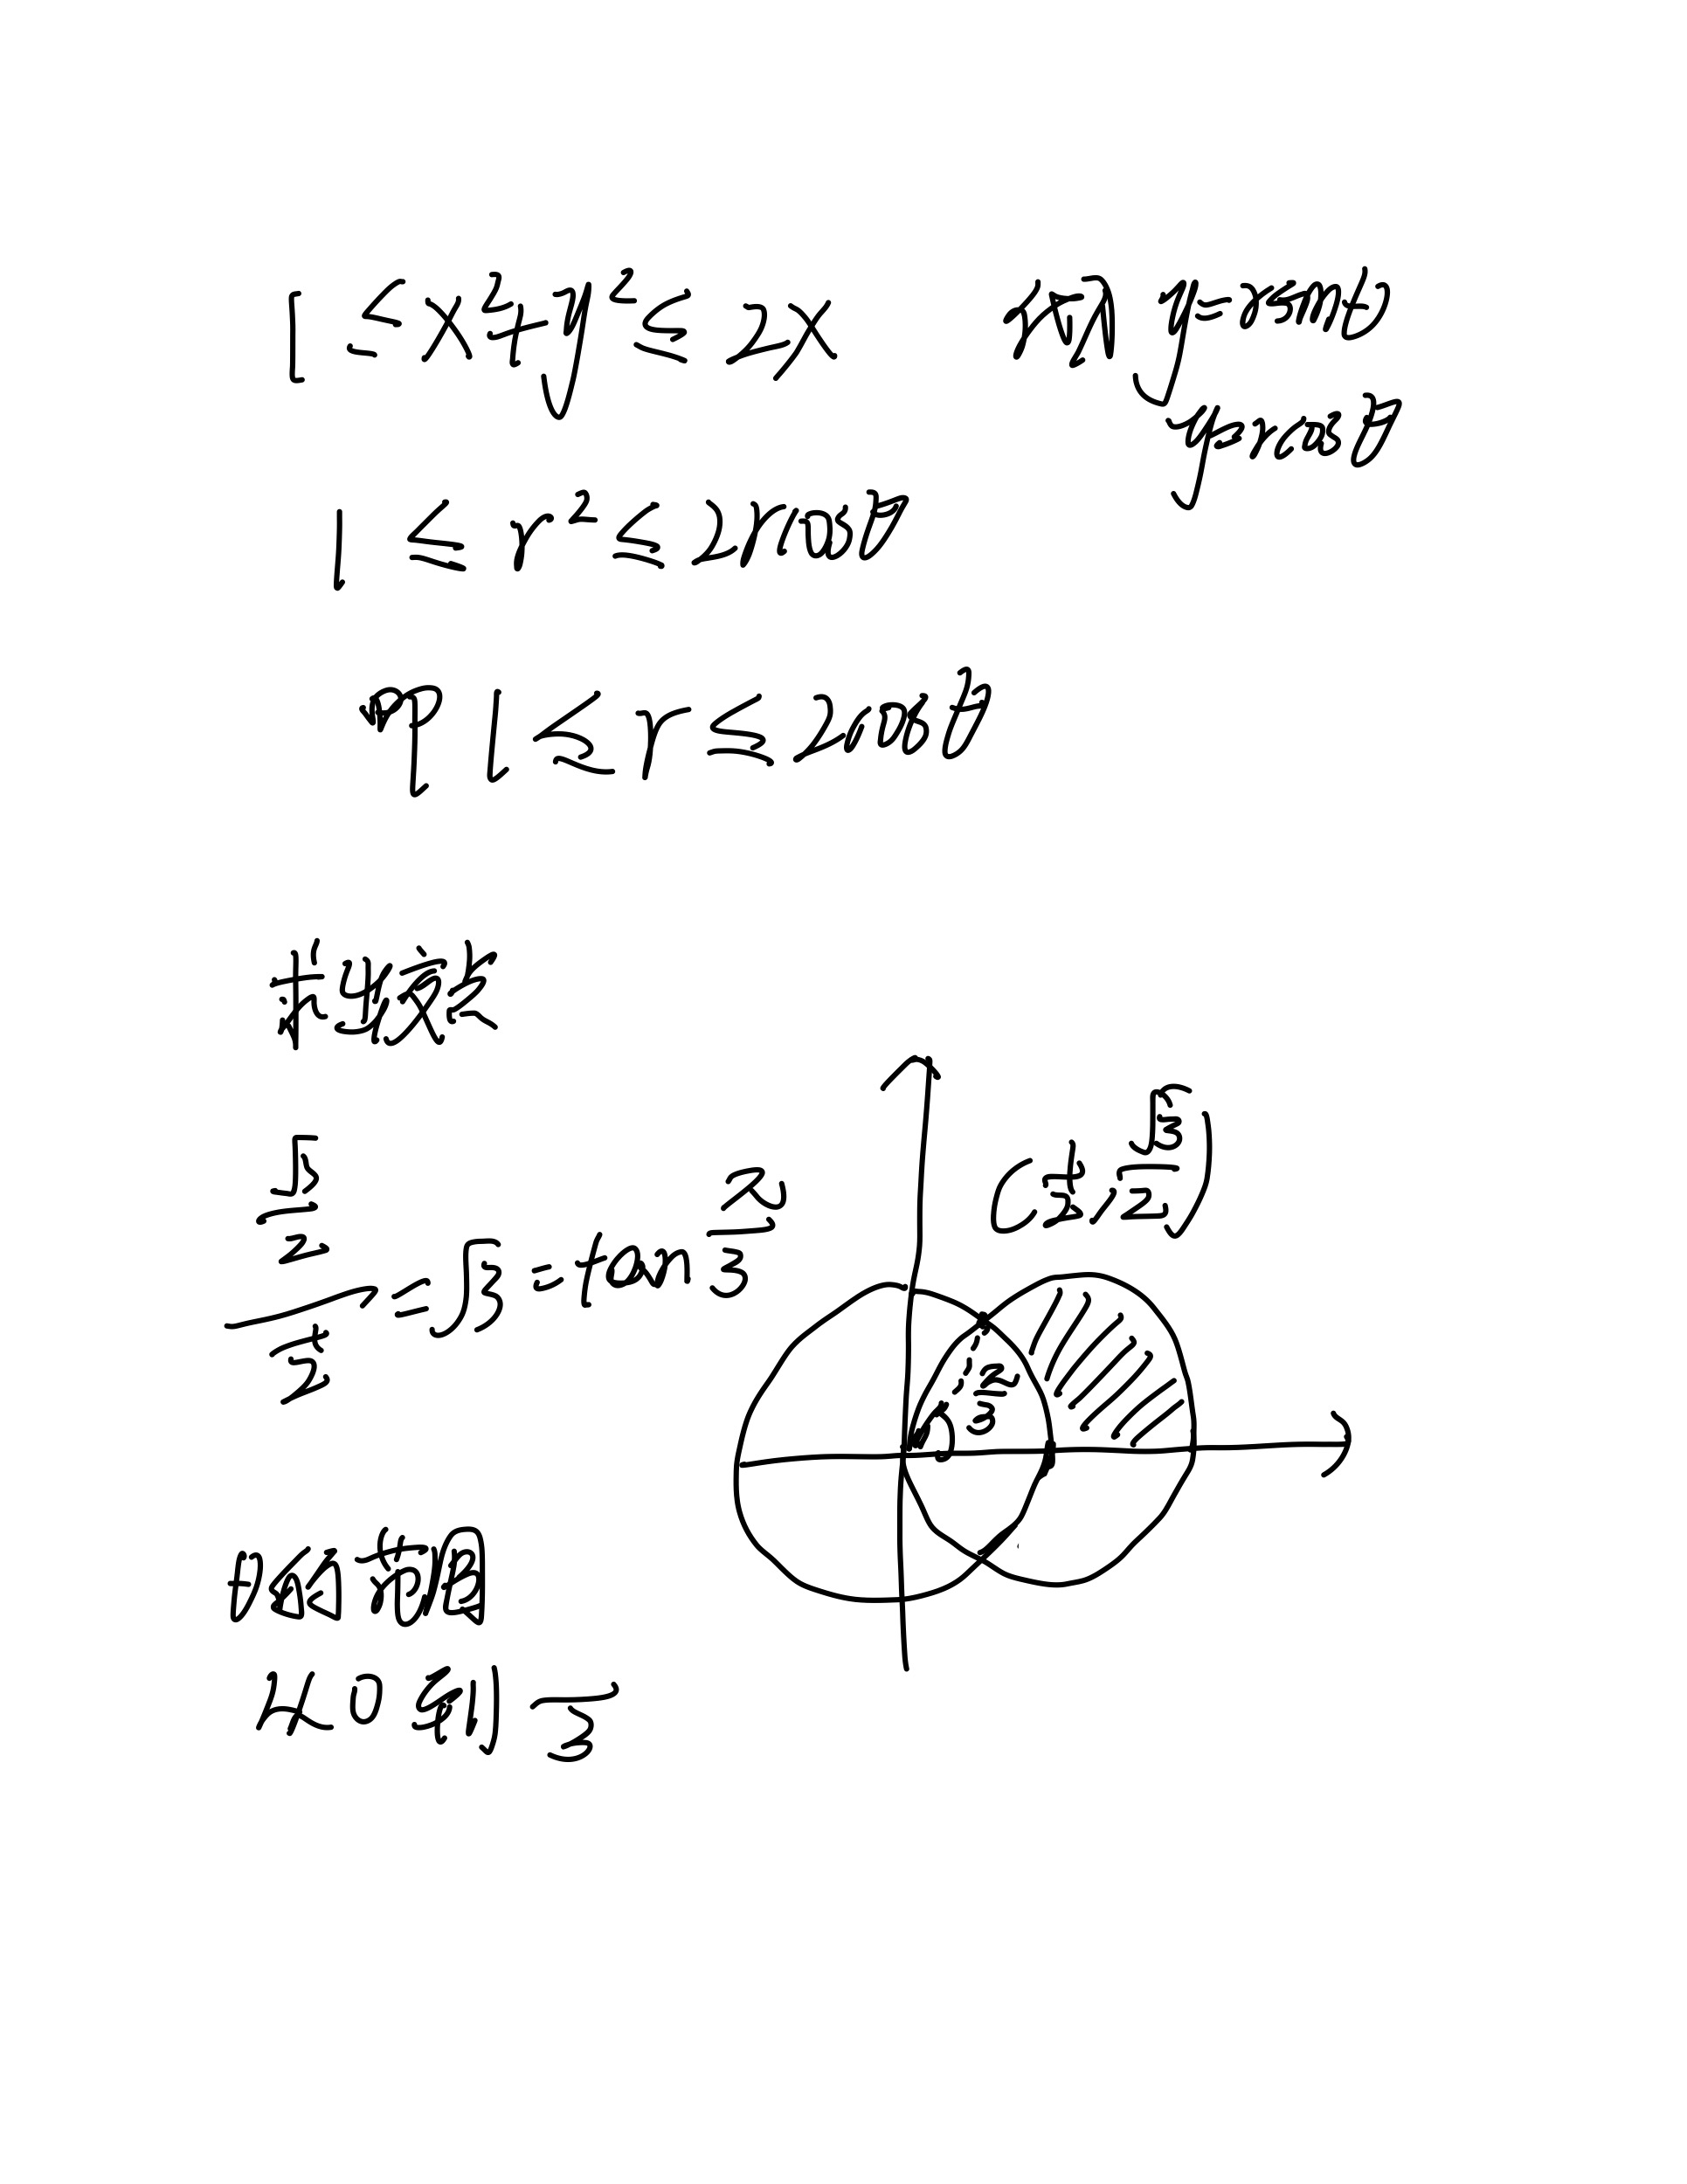 1 ≤ x²+y² ≤ 2x 利用 y=rsinθ
y=rcosθ
1 ≤ r² ≤ 2rcosθ
即 1 ≤ r ≤ 2cosθ
求出交点
(√3/2)/(1/2) = √3 = tan π/3
(1/2, √3/2)
π/3
阴影范围
从 0 到 π/3